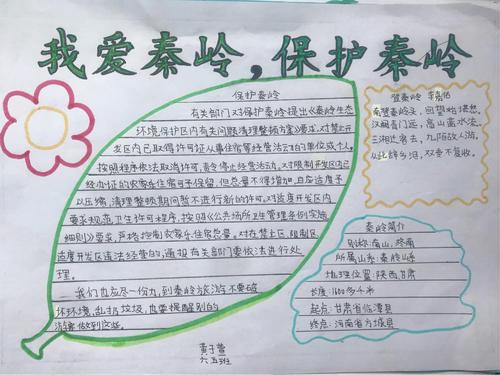 我爱秦岭，保护秦岭
保护秦岭
有关部门对保护秦岭提出《秦岭生态
环境保护区内有关问题清理整顿方案》要求，对禁止开
发区内已取得许可证从事住宿等经营活动的单位或个人，
按照程序依法取消许可，责令停止经营活动，对限制开发区内已
经办证的农家乐住宿可予保留，但总量不得增加，且应适度予
以压缩，清理整顿期间暂不进行新的许可，对适度开发区内
要求规范卫生许可程序，按照《公共场所卫生管理条例实施
细则》要求，严格控制农家乐住宿总量，对在禁止区、限制区、
适度开发区违法经营的，通报有关部门要依法进行处
理。
我们也应尽一份力，到秦岭旅游不要破
坏环境，乱扔垃圾，也要提醒别的
游客做到这些。
登秦岭
南登秦岭头，回望始堪愁。
汉阙青门远，高山蓝水流。
三湘迁客去，九陌故人游。
从此辞乡泪，双垂不复收。
秦岭简介
别称：南山、终南
所属山系：秦岭山系
地理位置：陕西，甘肃
长度：1600多千米
起点：甘肃省临潭县
终点：河南省方城县
黄子萱
六五班